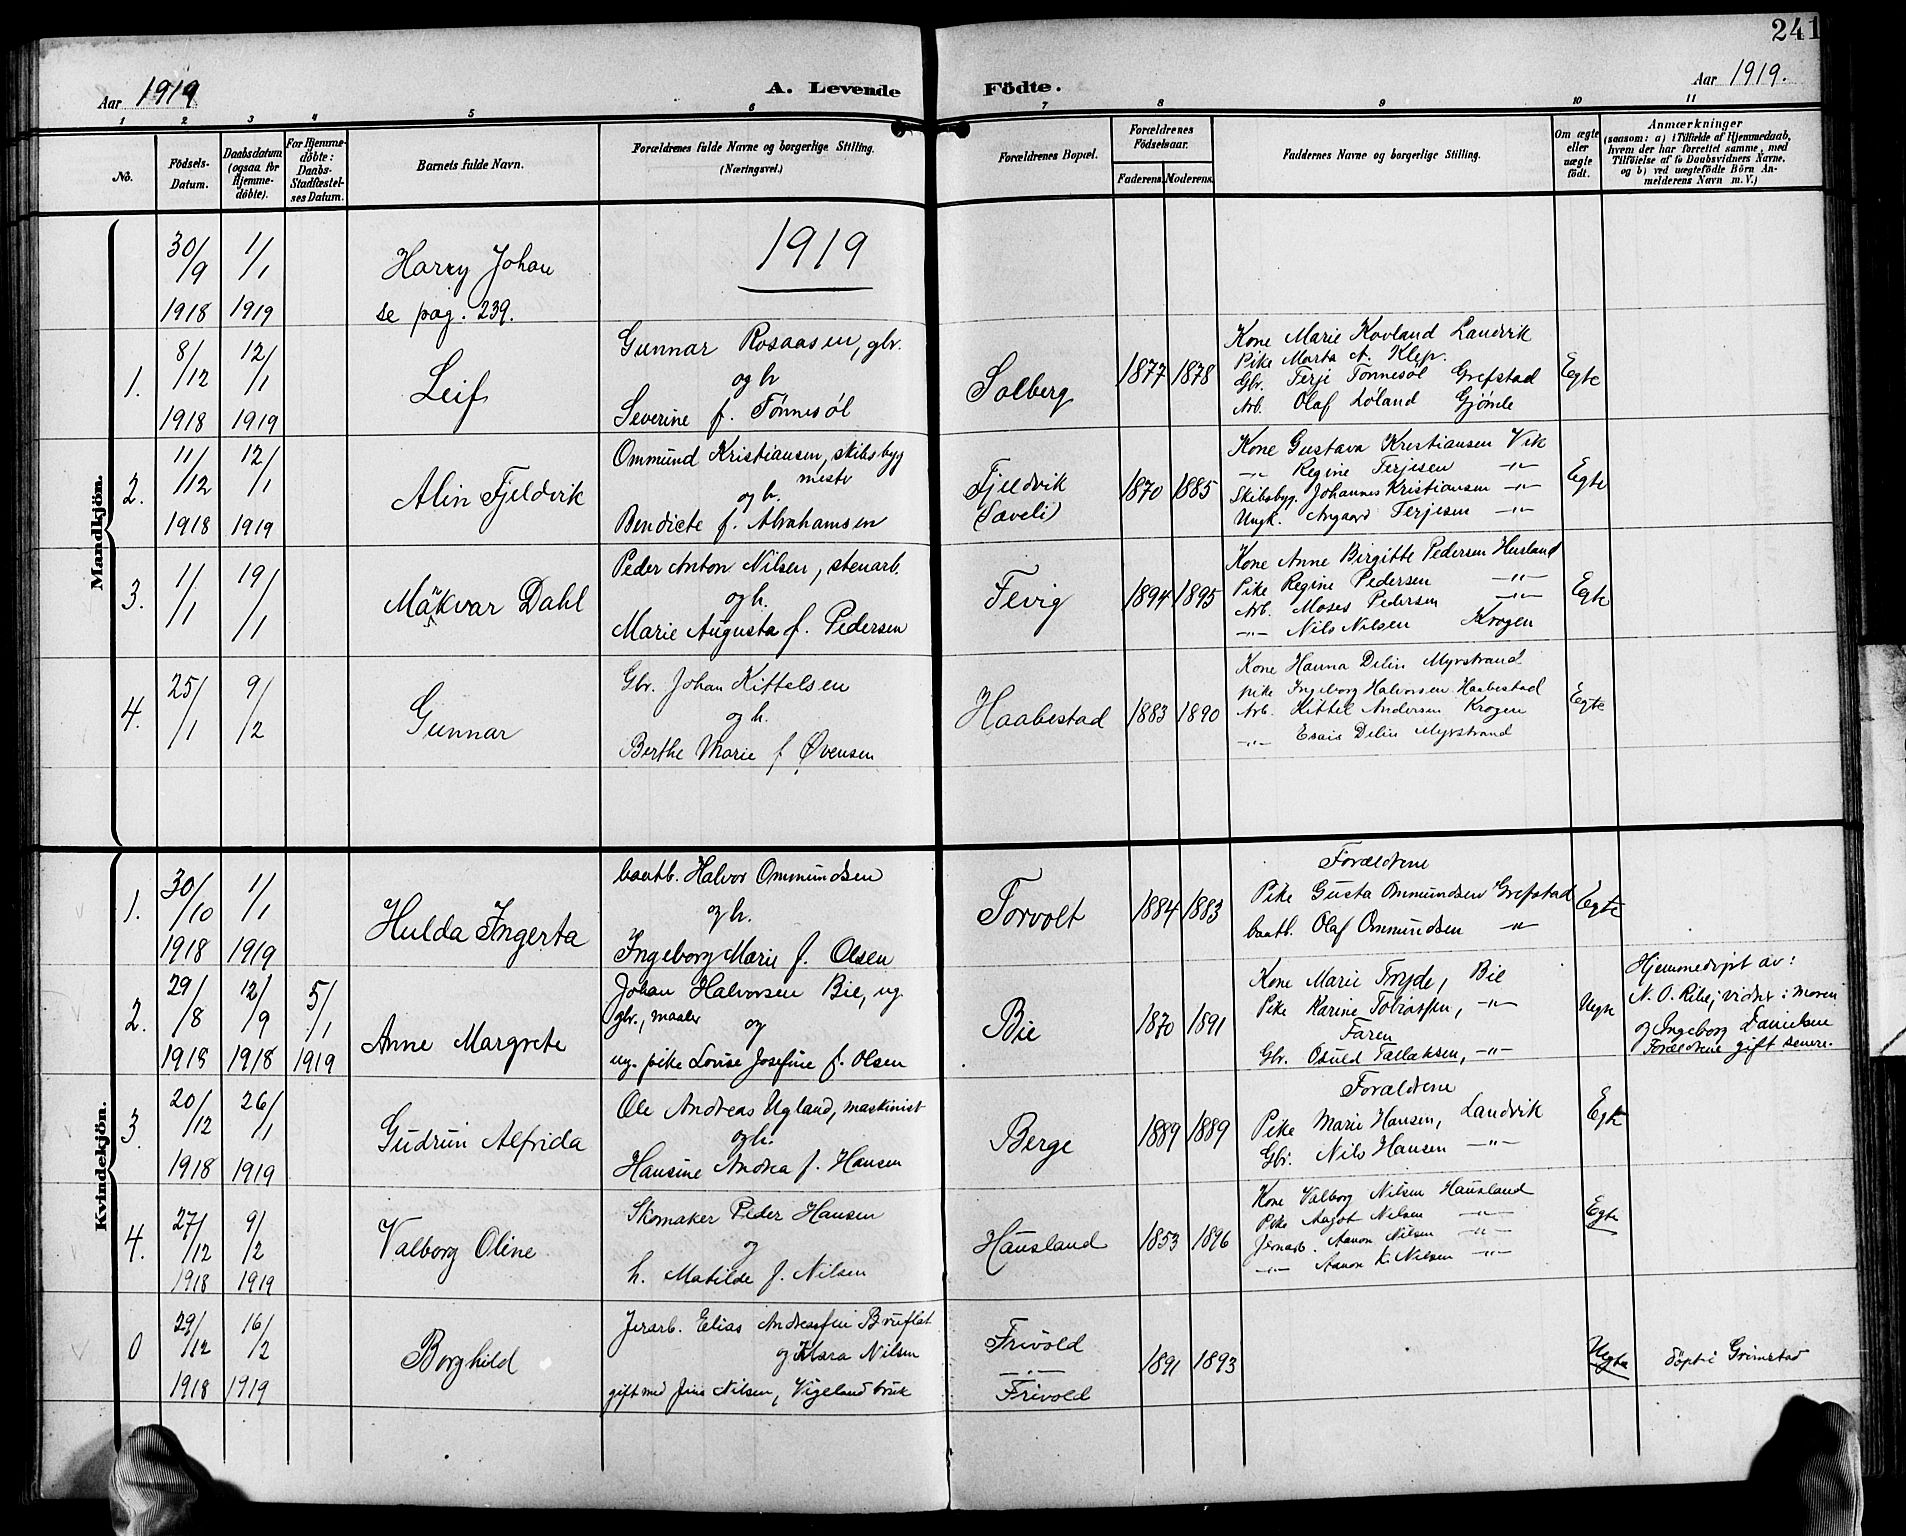 241
Aar 1919
A. Levende Födte.
Aar 1919.
1 2 3 4 5 6 7 8 9 10 11
No.
Födsels-Datum.
Daabsdatum (ogsaa for Hjemme-döbte).
For Hjemme-döbte: Daabs-Stadfæstel-ses Datum.
Barnets fulde Navn.
Forældrenes fulde Navne og borgerlige Stilling.
(Næringsvei.)
Forældrenes Bopæl.
Forældrenes Födselsaar.
Faderens. Moderens.
Faddernes Navne og borgerlige Stilling.
Om ægte eller uægte födt.
Anmærkninger
(saasom: a) i Tilfælde af Hjemmedaab,
hvem der har forrettet samme, med
Tilföielse af to Daabsvidners Navne,
og b) ved uægtefödte Börn An-
melderens Navn m. V.)
Mandkjön.
1919
30/9 1918
1/1 1919
Harry Johan
se pag. 239.
1.
8/12 1918
12/1 1919
Leif
Gunnar Rosaasen, gbr.
og h
Severine f. Tönnesøl
Solberg
1877 1878
Kone Marie Kovland Landvik
Pike Marta A. Klep.
Gbr. Terje Tonnesøl Grefstad
Arb. Olaf Loland Gjömle
Egte
2.
11/12 1918
12/1 1919
Alin Fjeldvik
Ommund Kristiansen, skibsbyg
mestr
og h.
Bendicte f. Abrahamsen
Fjeldvik
(Saveli)
1870 1885
Kone Gustava Kristiansen Vik
-"- Regine Terjesen -"-
Skibsbyg. Johannes Kristiansen -"-
Ungk. Aagaard Terjesen -"-
Egte
3.
1/1
19/1
Mäkvar Dahl
Peder Anton Nilsen, stenarb.
og h.
Marie Augusta f. Pedersen
Fevig
1894 1895
Kone Anne Birgitte Pedersen Husland
Pike Regine Pedersen -"-
Arb. Moses Pedersen -"-
-"- Nils Nilsen Krogen
Egte
4.
25/1
9/2
Gunnar
Gbr. Johan Kittelsen
og h.
Berthe Marie f Øvensen
Haabestad
1883 1890
Kone Hanna Delin Myrstrand
pike Ingeborg Halvorsen Haabestad
Arb. Kittel Andersen Krogen
-"- Esais Delin Myrstrand
Egte
Kvindekjön.
1.
30/10 1918
1/1 1919
Hulda Ingerta
baatb. Halvor Ommundsen
og h.
Ingeborg Marie f. Olsen
Torvolt
1884 1883
Forældrene
Pike Gusta Ommundsen Grefstad
baatb. Olaf Ommundsen -"-
Egte
2.
29/8 1918
12/9 1918
5/1 1919
Anne Margrete
Johan Halvorsen Bie, ug.
gbr., maaler og
ug. pike Lovise Josefine f. Olsen
Bie
1870 1891
Kone Marie Tryde, Bie
Pike Karine Tobiassen, -"-
Faren
Gbr. Osuld Tallaksen, -"-
Uegte
Hjemmedöpt av:
N. O. Ribe; vidner: moren
og Ingeborg Danielsen
Forældrene gift senere.
3.
20/12 1918
26/1 1919
Gudrun Alfrida
Ole Andreas Ugland, maskinist
og h.
Hansine Andrea f. Hansen
Berge
1889 1889
Forældrene
Pike Marie Hansen, Landvik
Gbr. Nils Hansen -"-
Egte
4.
27/12 1918
9/2 1919
Valborg Oline
Skomaker Peder Hansen
og
h. Matilde f. Nilsen
Hausland
1853 1896
Kone Valborg Nilsen Hausland
Pike Aagot Nilsen -"-
Jernarb. Aanon Nilsen -"-
-"- Aanon K. Nilsen -"-
Egte
0
29/12 1918
16/2 1919
Borghild
Jerarb. Elias Andreassen Bruflat
og Klara Nilsen
gift med Jens Nilsen, Vigeland bruk
Frivold
Frivold
1891 1893
Uegte
döpt i Grimstad